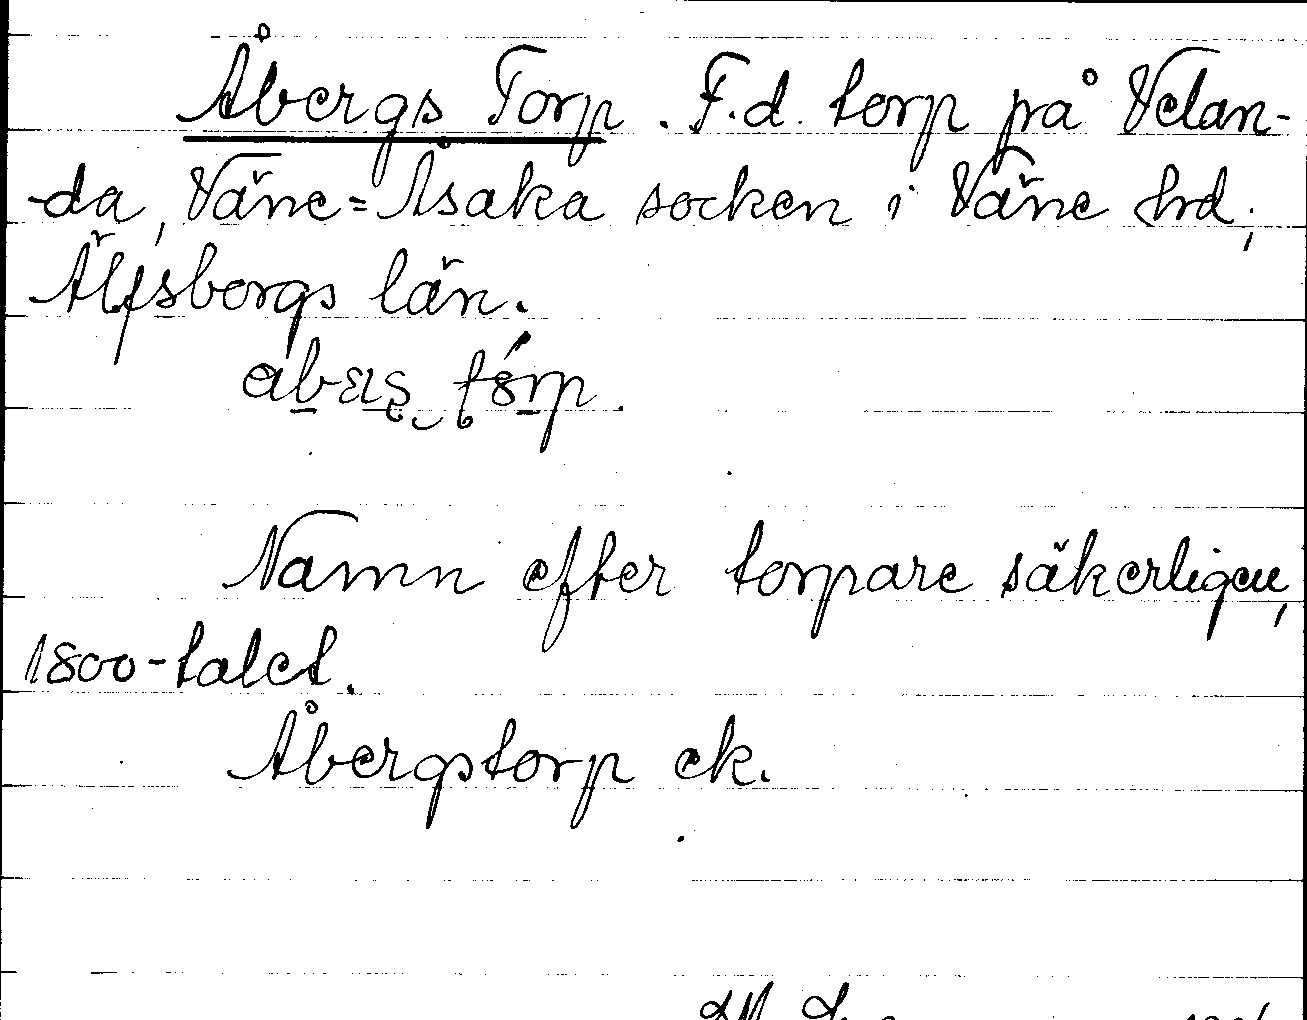 Åbergs Torp. F.d. torp på Velan-
-da, Väne=Åsaka socken i Väne hd,
Älfsborgs län.
Namn efter torpare säkerligen,
1800-talet.
Åbergstorp ek.